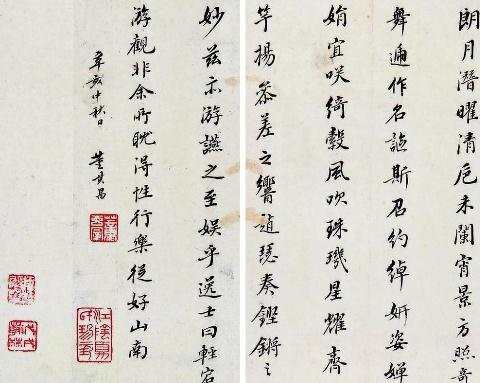 朗月潛曜清卮未闌宵景方照奇
舞遞作名謳斯召約綽妍姿嬋
娟宜咲綺縠風吹珠璣星耀齊
竽揚參差之響趙瑟奏鏗鏘之
妙茲亦游讌之至娛乎逸士曰輕宕
游觀非余所耽得性行樂從好山南
辛亥仲秋日 董其昌